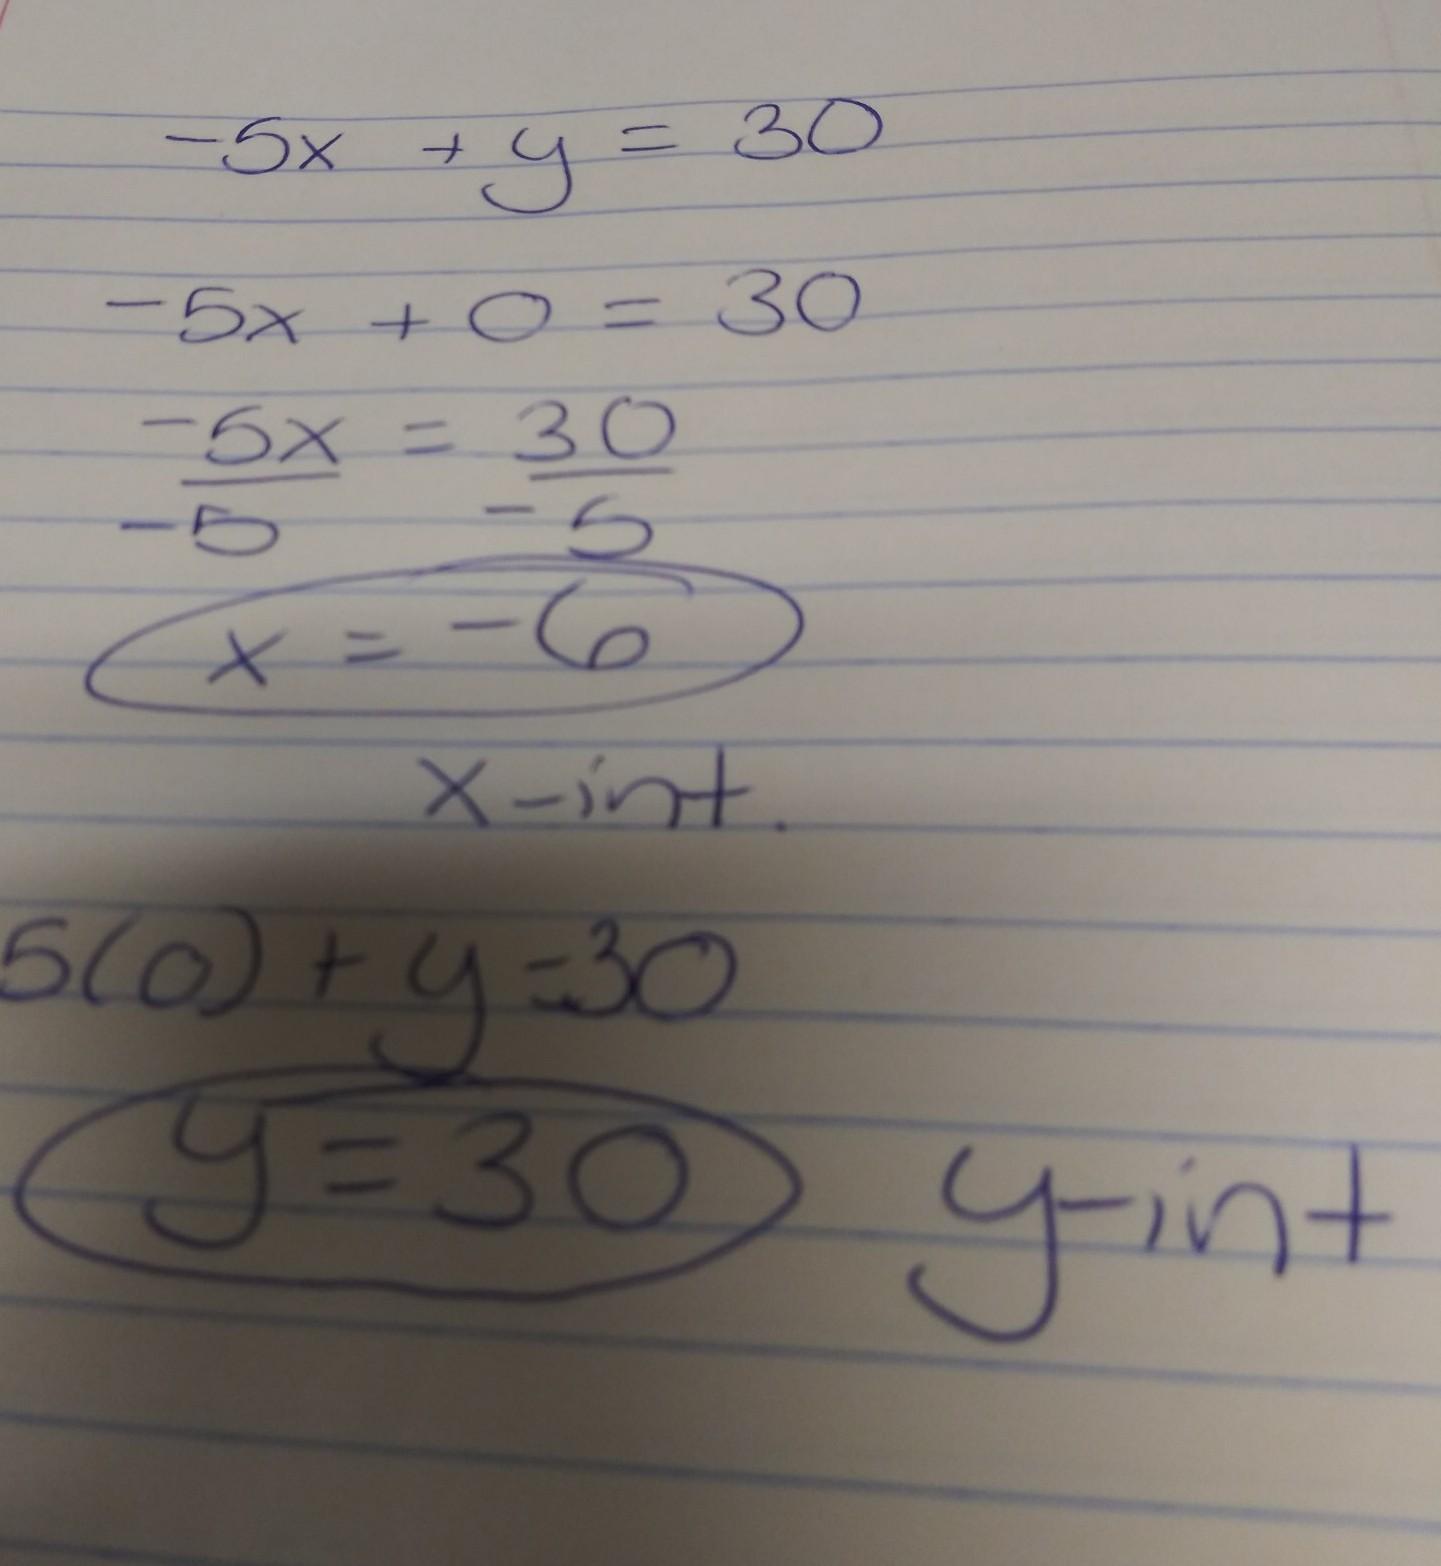 -5x + y = 30
-5x + 0 = 30
-5x = 30
-5 -5
x = -6
x-int.
5(0) + y = 30
y = 30 y-int